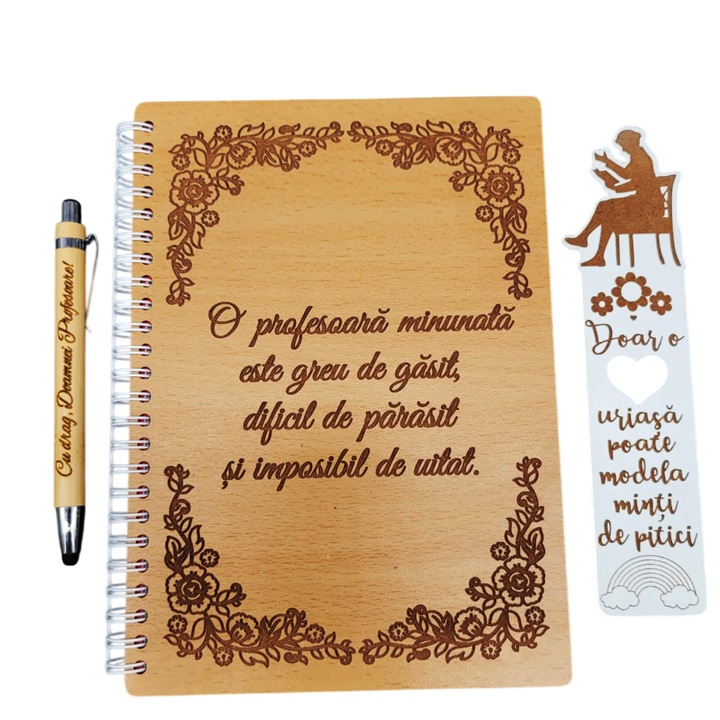 Cu drag, Doamnei Profesoare!
O profesoară minunată
este greu de găsit,
dificil de părăsit
și imposibil de uitat.
Doar o
uriașă
poate
modela
minți
de pitici